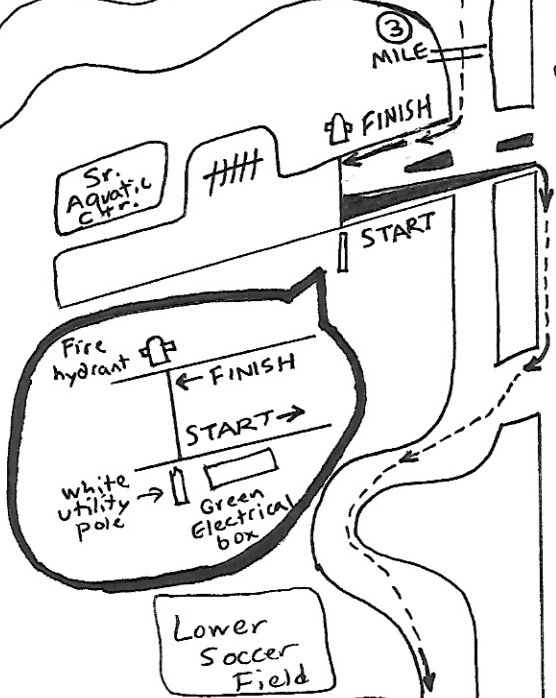 3
MILE
FINISH
Sr.
Aquatic
Ctr.
START
Fire
hydrant
← FINISH
START →
white
utility →
pole
Green
Electrical
box
Lower
Soccer
Field